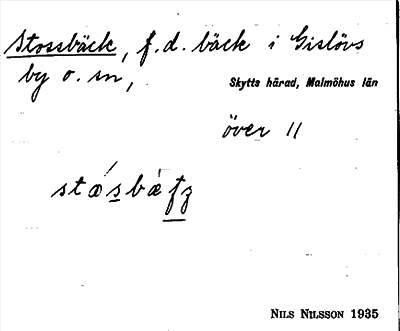 Stossbäck, f. d. bäck i Gislövs
by o. sn,
Skytts härad, Malmöhus län
över //
NILS NILSSON 1935